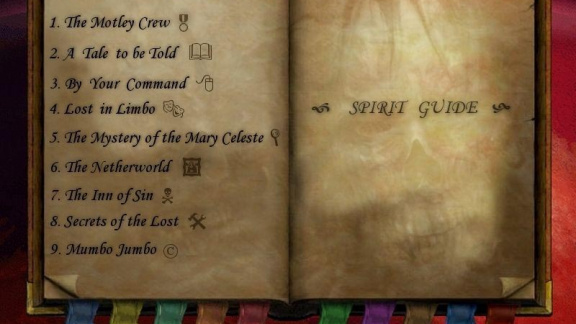 1. The Motley Crew
2. A Tale to be Told
3. By Your Command
4. Lost in Limbo
5. The Mystery of the Mary Celeste
6. The Netherworld
7. The Inn of Sin
8. Secrets of the Lost
9. Mumbo Jumbo ©
SPIRIT GUIDE